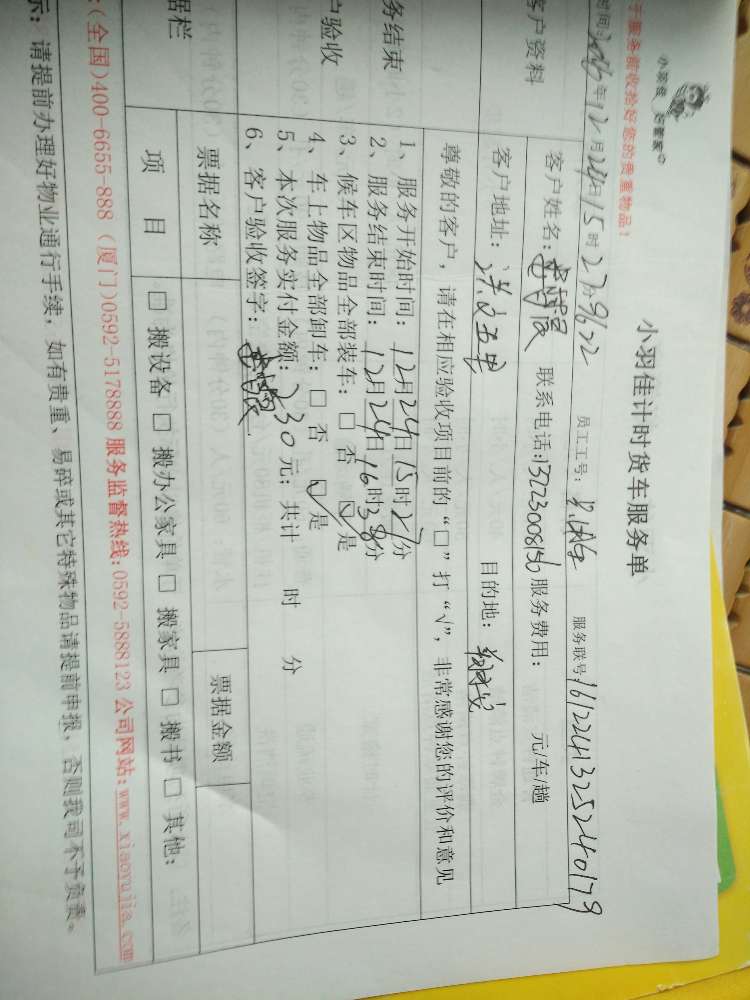 于服务前收拾好您的贵重物品！
小羽佳计时货车服务单
时间：2016年12月24日15时27分 9622 员工工号： 服务联号1612241325240179
客户资料
客户姓名： 联系电话：13223008156 服务费用： 元/车/趟
客户地址：洪文五里 目的地：
尊敬的客户，请在相应验收项目前的“□”打“√”，非常感谢您的评价和意见
务结束
户验收
1、服务开始时间：12月24日15时27分
2、服务结束时间：12月24日16时38分
3、候车区物品全部装车：□ 否 ☑ 是
4、车上物品全部卸车：□ 否 ☑ 是
5、本次服务实付金额：230元；共计 时 分
6、客户验收签字：
据栏
票据名称 票据金额
项 目 □ 搬设备 □ 搬办公家具 □ 搬家具 □ 搬书 □ 其他：
:(全国)400-6655-888 (厦门)0592-5178888 服务监督热线:0592-5888123 公司网站:www.xiaoyujia.com
示：请提前办理好物业通行手续，如有贵重、易碎或其它特殊物品请提前申报，否则我司不予负责。